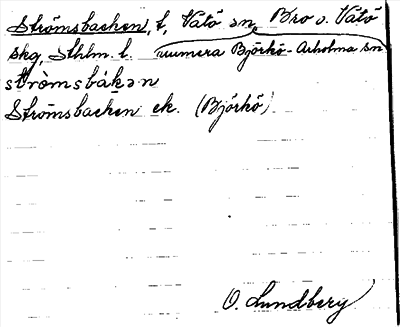 Strömsbacken, t, Vätö sn, Bro o. Vätö
skg, Sthlm. l. numera Björkö-Arholma sn
strömsbákən
Strömsbacken ek. (Björkö)
O. Lundberg